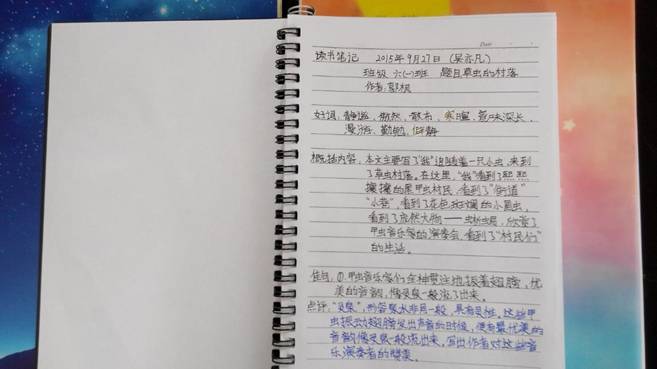 Date
读书笔记 2015年9月27日 (吴亦凡)
班级 六(一)班 题目草虫的村落
作者:郭枫
好词:静谧、俨然、散布、寒暄、意味深长、
漫游、勤勉、僻静
概括内容:本文主要写了"我"追随着一只小虫,来到
了草虫村落。在这里,"我"看到了熙熙
攘攘的黑甲虫村民,看到了"街道"
"小巷",看到了花色斑斓的小圆虫,
看到了庞然大物——虫,欣赏了
甲虫音乐家的演奏会,看到了"村民们"
的生活。
佳句:①.甲虫音乐家们全神贯注地振着翅膀,优
美的音韵,像灵泉一般流了出来。
点评:"灵泉",形容泉水非同一般,具有灵性。这些甲
虫振动翅膀发出声音的时候,便有最优美的
音韵像灵泉一般流出来,写出作者对这些音
乐演奏者的赞美。